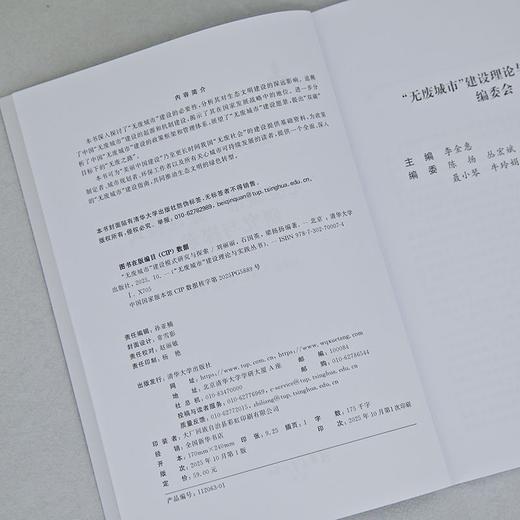 内容简介
本书深入探讨了“无废城市”建设的必要性，分析其对生态文明建设的深远影响，追溯
了中国“无废城市”建设的起源和机制建设，揭示了其在国家发展战略中的地位，进一步分
析了中国“无废城市”建设的政策框架和管理体系，展望了“无废城市”建设愿景，提出“双碳”
目标下的“无废之路”。
本书可为“美丽中国建设”乃至更长时间我国“无废社会”的建设提供基础资料，为政策
制定者、城市规划者、环保工作者以及所有关心城市可持续发展的读者，提供一个全面、深入
的“无废城市”建设指南，共同推动生态文明的绿色转型。
本书封面贴有清华大学出版社防伪标签，无标签者不得销售。
版权所有，侵权必究。举报：010-62782989，beiqinquan@tup.tsinghua.edu.cn。
图书在版编目（CIP）数据
“无废城市”建设模式研究与探索 / 刘丽丽，石国英，梁杨扬编著. -- 北京：清华大学
出版社，2025.10. --（“无废城市”建设理论与实践丛书）. -- ISBN 978-7-302-70007-4
Ⅰ. X705
中国国家版本馆 CIP 数据核字第 2025PG5889 号
责任编辑：孙亚楠
封面设计：常雪影
责任校对：赵丽敏
责任印制：杨艳
出版发行：清华大学出版社
网址：https://www.tup.com.cn，https://www.wqxuetang.com
地址：北京清华大学学研大厦 A 座 邮编：100084
社总机：010-83470000 邮购：010-62786544
投稿与读者服务：010-62776969，c-service@tup.tsinghua.edu.cn
质量反馈：010-62772015，zhiliang@tup.tsinghua.edu.cn
印装者：大厂回族自治县彩虹印刷有限公司
经销：全国新华书店
开本：170mm×240mm 印张：9.25 插页：1 字数：175 千字
版次：2025 年 10 月第 1 版 印次：2025 年 10 月第 1 次印刷
定价：59.00 元
产品编号：112063-01
“无废城市”建设理论与
编委会
主编 李金惠
编委 陈扬 丛宏斌
聂小琴 牛玲娟